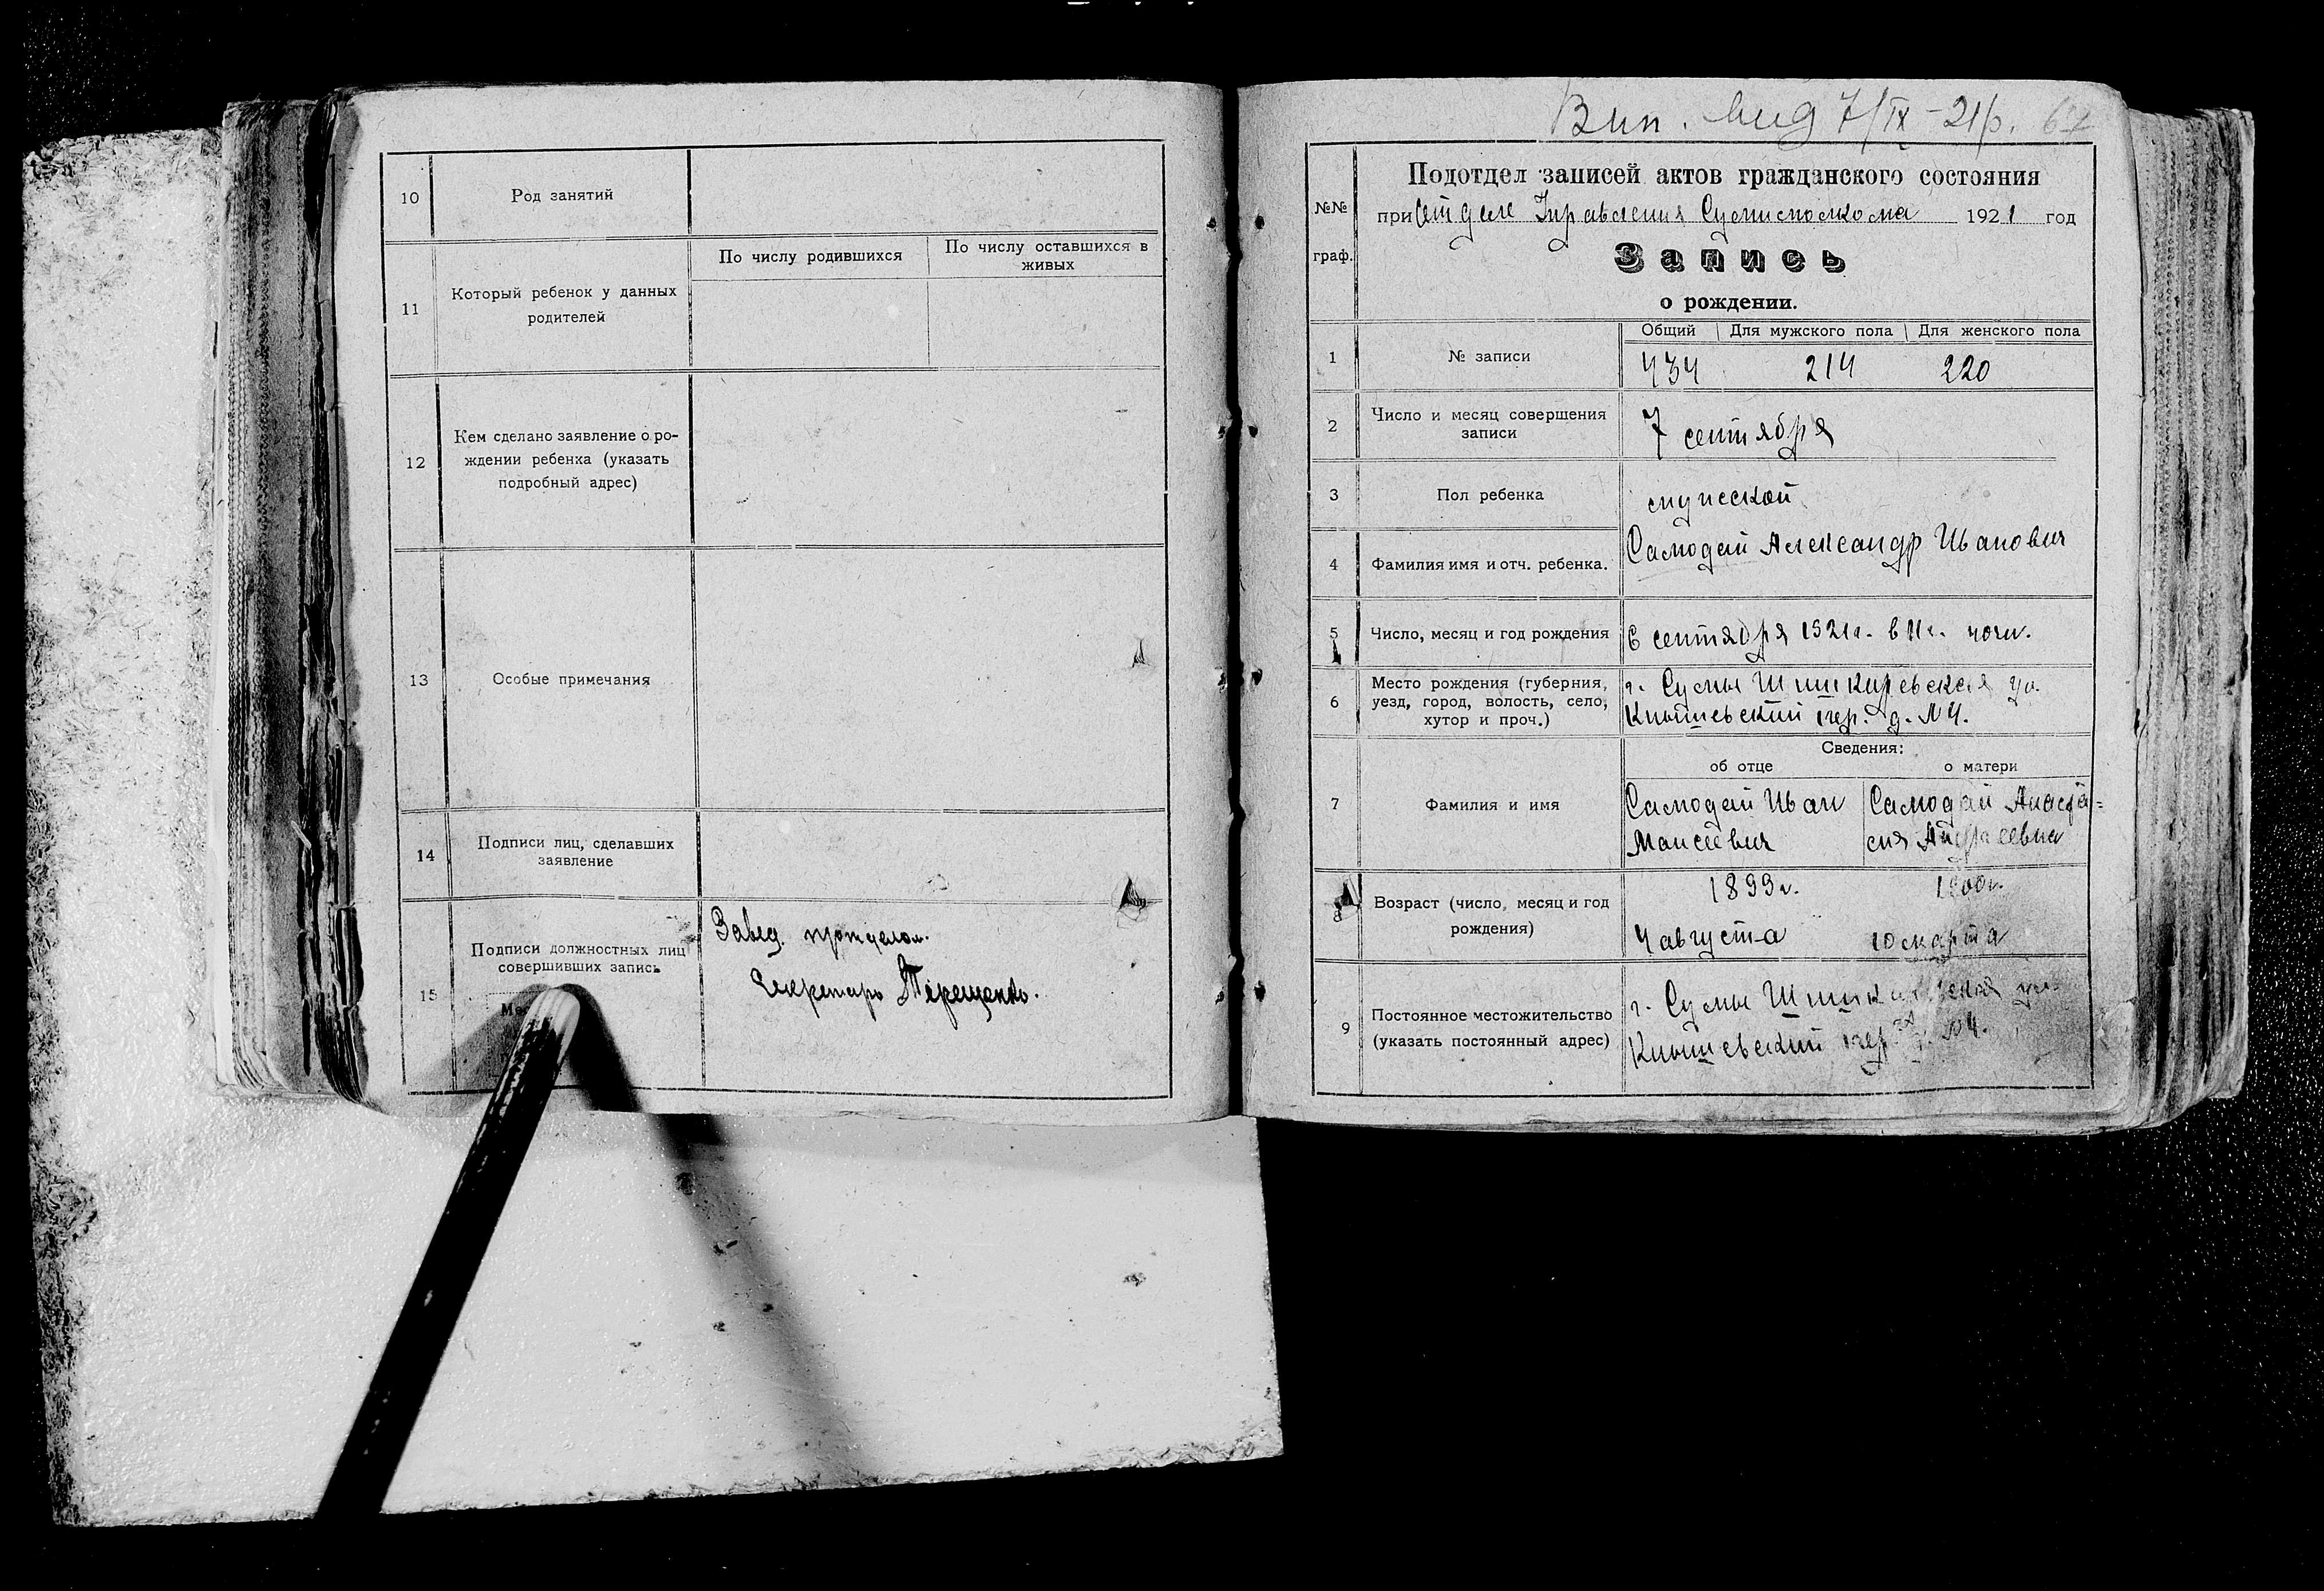 10
Род занятий
11
Который ребенок у данных
родителей
По числу родившихся
По числу оставшихся в
живых
12
Кем сделано заявление о ро-
ждении ребенка (указать
подробный адрес)
13
Особые примечания
14
Подписи лиц, сделавших
заявление
15
Подписи должностных лиц
совершивших запись
Завед. п/отделом.
Секретарь Терещенко.
Вип. вид 7/IX-21р.
№№
граф.
Подотдел записей актов гражданского состояния
при Отделе Управления Сумисполкома 1921 год
Запись
о рождении.
Общий Для мужского пола Для женского пола
1
№ записи
434 214 220
2
Число и месяц совершения
записи
7 сентября
3
Пол ребенка
мужской
4
Фамилия имя и отч. ребенка.
Самодай Александр Иванович
5
Число, месяц и год рождения
6 сентября 1921г. в 11ч. ночи.
6
Место рождения (губерния,
уезд, город, волость, село,
хутор и проч.)
г. Сумы Шишкаревская ул.
пер. д. №4.
7
Фамилия и имя
Сведения:
об отце
о матери
Самодай Иван
Моисеевич
Самодай Анаста=
сия Андреевна
8
Возраст (число, месяц и год
рождения)
1899г.
4 августа
1900г.
10 марта
9
Постоянное местожительство
(указать постоянный адрес)
г. Сумы Шишкаревская ул.
пер. д. №4.